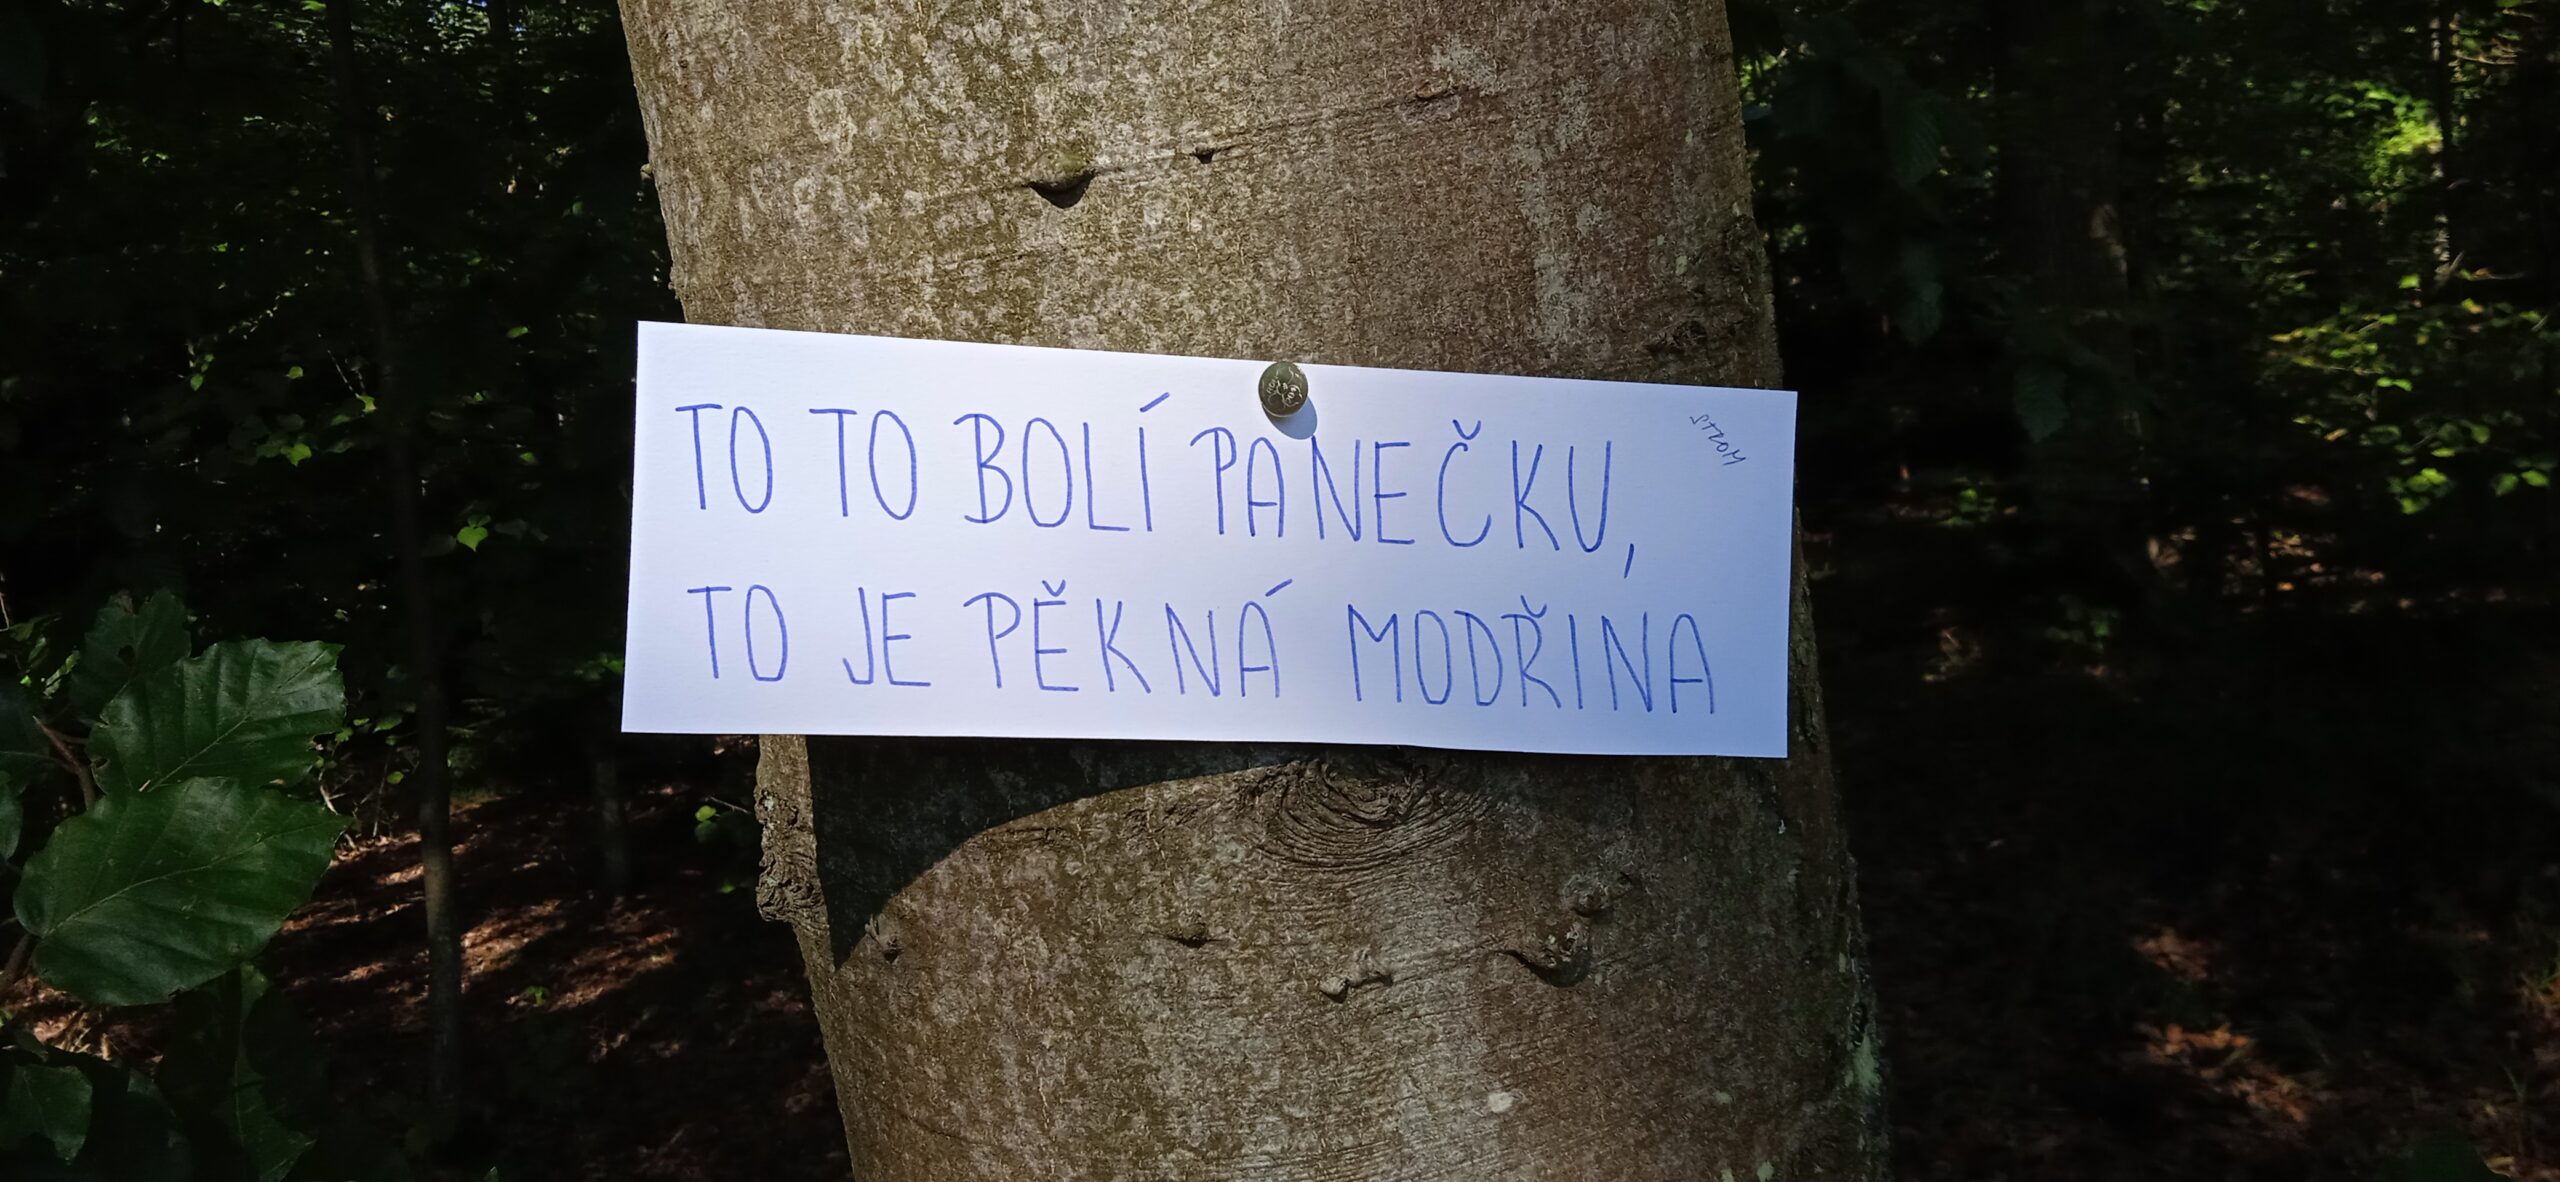 TO TO BOLÍ PANEČKU,
TO JE PĚKNÁ MODŘINA
STROM